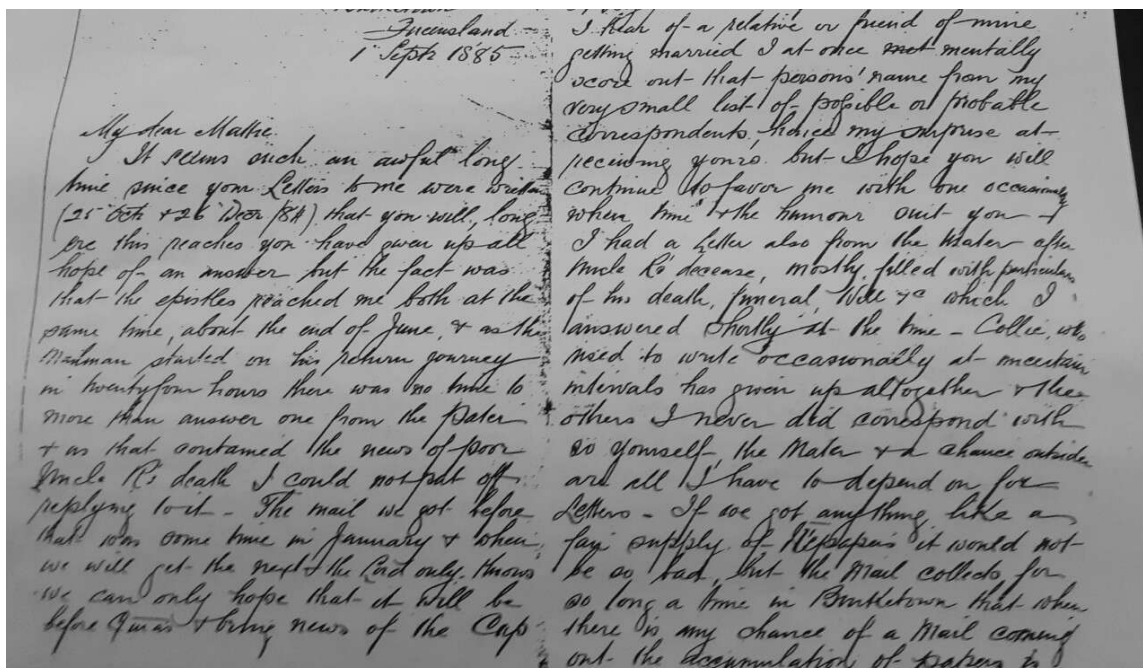 Queensland
1 Septr 1885
My dear Mattie
It seems such an awful long
time since your Letters to me were written
(25 Octr & 26 Decr /84) that you will, long
ere this reaches you have given up all
hope of an answer but the fact was
that the epistles reached me both at the
same time, about the end of June, & as the
Mailman started on his return journey
in twentyfour hours there was no time to
more than answer one from the Pater
& as that contained the news of poor
Uncle R's death I could not put off
replying to it - The mail we got before
that was some time in January & when
we will get the next the Lord only knows
we can only hope that it will be
before Xmas & bring news of the Cup
I hear of a relative or friend of mine
getting married I at once met mentally
score out that persons' name from my
very small list of possible or probable
correspondents, hence my surprise at
receiving yours, but I hope you will
continue to favor me with one occasionally
when time & the humour suit you -
I had a Letter also from the Mater after
Uncle R's decease, mostly filled with particulars
of his death, funeral, Will &c which I
answered shortly at the time - Collie, who
used to write occasionally at uncertain
intervals has given up altogether & the
others I never did correspond with
so yourself, the Mater & a chance outsider
are all I have to depend on for
Letters - If we got anything like a
fair supply of it would not
be so bad, but the Mail collects for
so long a time in Burketown that when
there is any chance of a Mail coming
out the accumulation of papers is